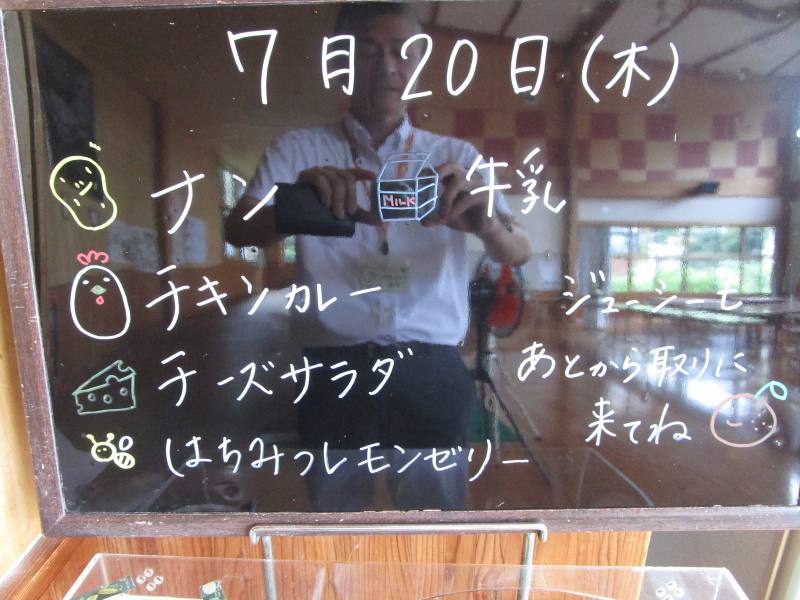 7月20日(木)
ナン
MILK
牛乳
チキンカレー
チーズサラダ
はちみつレモンゼリー
ジューシーも
あとから取りに
来てね